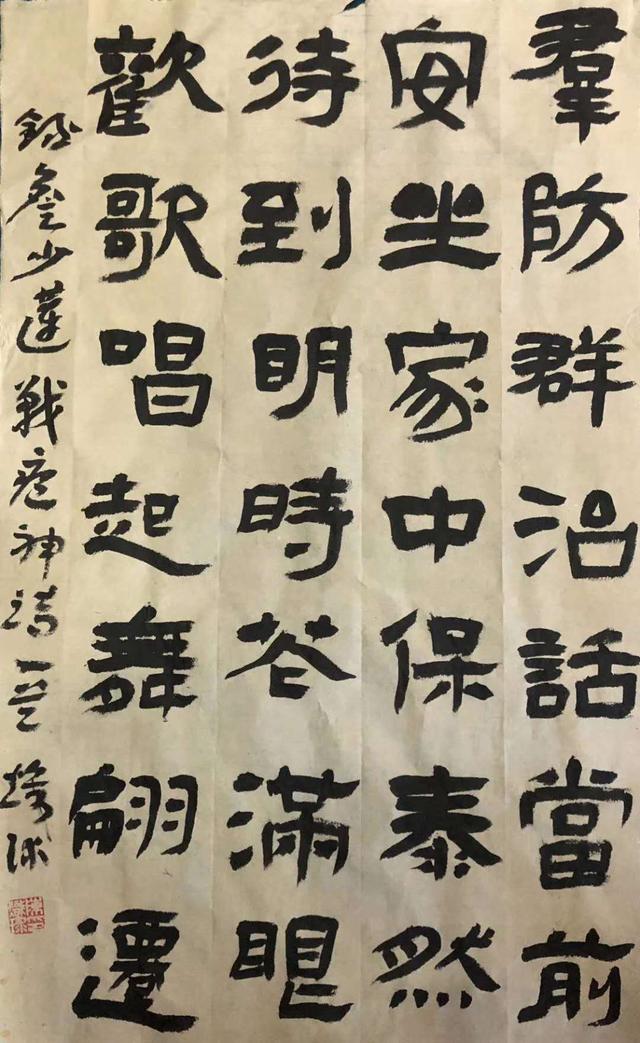 羣防群治話當前
安坐家中保泰然
待到明時花滿眼
歡歌唱起舞翩遷
錄詹少蓮戰瘟神詩一首